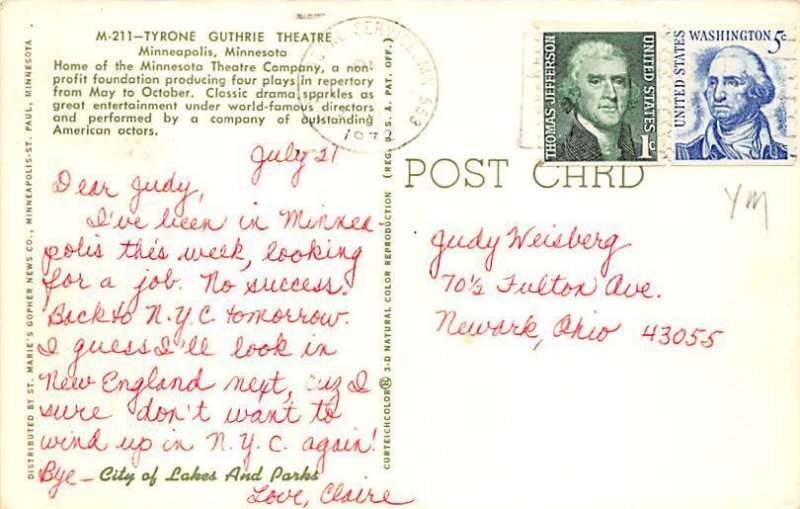 M-211—TYRONE GUTHRIE THEATRE
Minneapolis, Minnesota
Home of the Minnesota Theatre Company, a non-
profit foundation producing four plays in repertory
from May to October. Classic drama sparkles as
great entertainment under world-famous directors
and performed by a company of outstanding
American actors.
July 27
Dear Judy,
I've been in Minnea-
polis this week, looking
for a job. No success.
Back to N.Y.C tomorrow.
I guess I'll look in
New England next, cuz I
sure don't want to
wind up in N.Y.C. again!
Bye—
City of Lakes And Parks
Love, Claire
DISTRIBUTED BY ST. MARIE'S GOPHER NEWS CO., MINNEAPOLIS-ST. PAUL, MINNESOTA
CURTEICHCOLOR® 3-D NATURAL COLOR REPRODUCTION (REG. U. S. A. PAT. OFF.)
SERVICE, MN 553
1972
THOMAS JEFFERSON
UNITED STATES
1c
UNITED STATES
WASHINGTON 5c
POST CARD
YM
Judy Weisberg
70½ Fulton Ave.
Newark, Ohio 43055